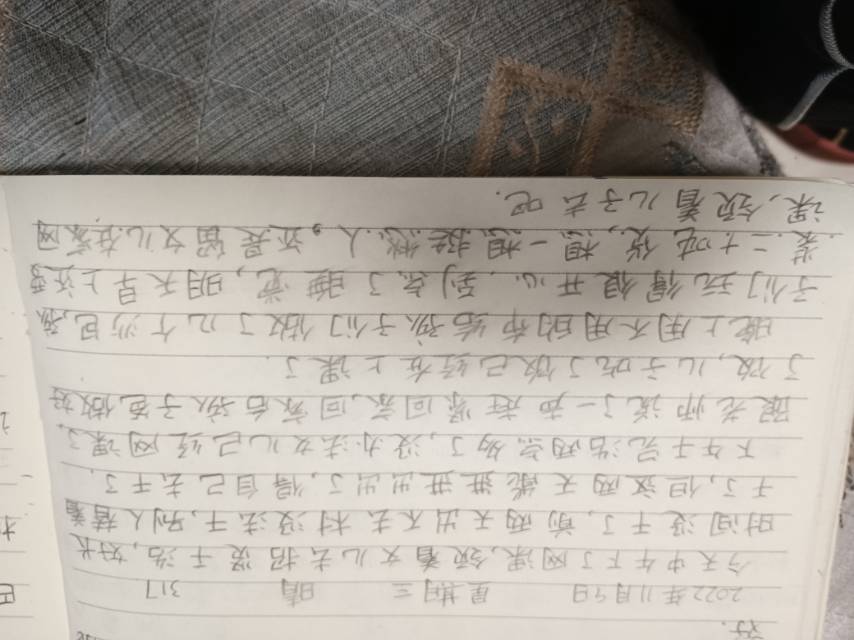 好.
2022年11月9日 星期三 晴 317
今天中午下了网课,领着女儿去招凌干活,好长
时间没干了,前两天出不去村没法干,别人替着
干了,但这两天能进进出出了,得自己去干了.
下午干完活两点多了,没办法女儿已经网课了,
跟老师说了一声赶紧回家,回家后孩子爸做好
了饭,儿子吃了饭已经在上课了.
晚上用不用的布给孩子们做了几个沙包,孩
子们玩得很开心,到点了睡觉,明天早上还要
装二十吨货,想一想挺愁人,还是留女儿在家网
课,领着儿子去吧.